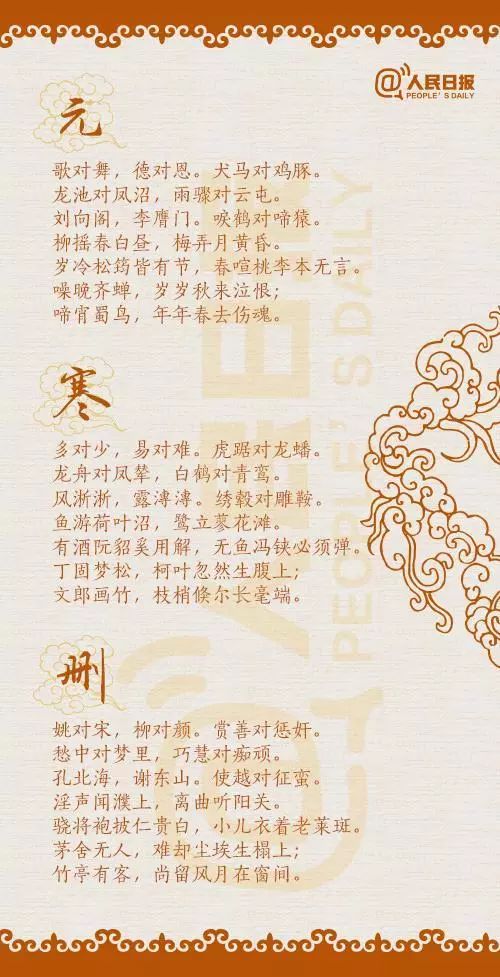 @人民日报
PEOPLE'S DAILY
元
歌对舞，德对恩。犬马对鸡豚。
龙池对凤沼，雨骤对云屯。
刘向阁，李膺门。唳鹤对啼猿。
柳摇春白昼，梅弄月黄昏。
岁冷松筠皆有节，春喧桃李本无言。
噪晚齐蝉，岁岁秋来泣恨；
啼宵蜀鸟，年年春去伤魂。
寒
多对少，易对难。虎踞对龙蟠。
龙舟对凤辇，白鹤对青鸾。
风淅淅，露漙漙。绣毂对雕鞍。
鱼游荷叶沼，鹭立蓼花滩。
有酒阮貂奚用解，无鱼冯铗必须弹。
丁固梦松，柯叶忽然生腹上；
文郎画竹，枝梢倏尔长毫端。
删
姚对宋，柳对颜。赏善对惩奸。
愁中对梦里，巧慧对痴顽。
孔北海，谢东山。使越对征蛮。
淫声闻濮上，离曲听阳关。
骁将袍披仁贵白，小儿衣着老莱斑。
茅舍无人，难却尘埃生榻上；
竹亭有客，尚留风月在窗间。
@人民日报
PEOPLE'S DAILY